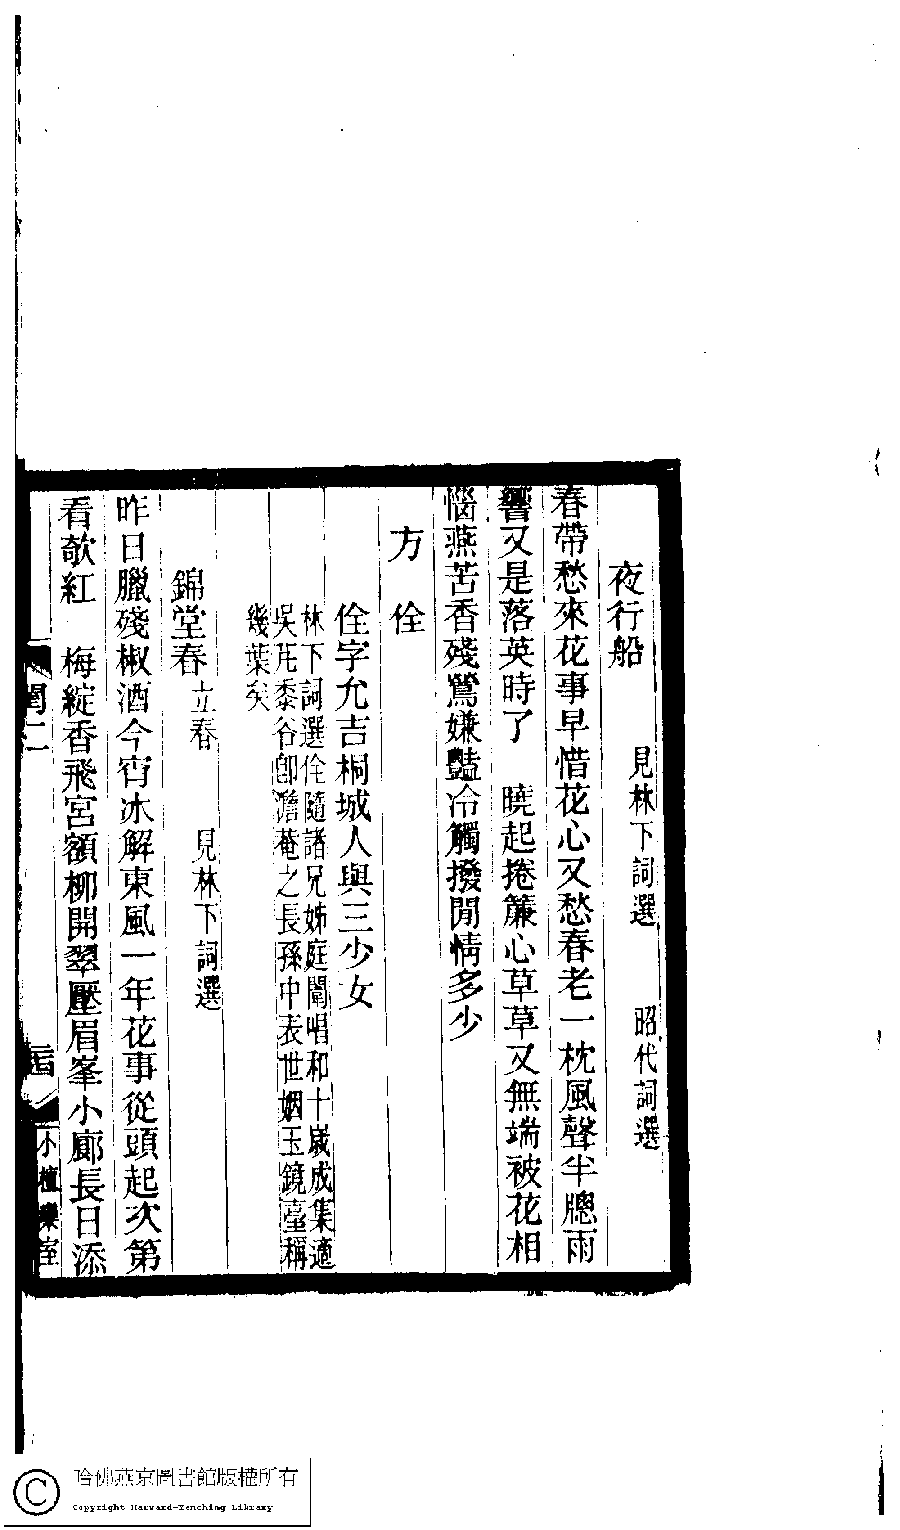 夜行船　見林下詞選　昭代詞選
春帶愁來花事早惜花心又愁春老一枕風聲半牕雨
響又是落英時了　曉起捲簾心草草又無端被花相
惱燕苦香殘鶯嫌豔冷觸撥閒情多少
方佺
佺字允吉桐城人與三少女
林下詞選佺隨諸兄姊庭闈唱和十歲成集適
吳芃黍谷卽澹菴之長孫中表世姻玉鏡臺稱
幾葉矣
錦堂春立春　見林下詞選
昨日臘殘椒酒今宵冰解東風一年花事從頭起次第
看欹紅　梅綻香飛宮額柳開翠壓眉峯小廊長日添
閏二
小檀欒室
哈佛燕京圖書館版權所有
Copyright Harvard-Yenching Library